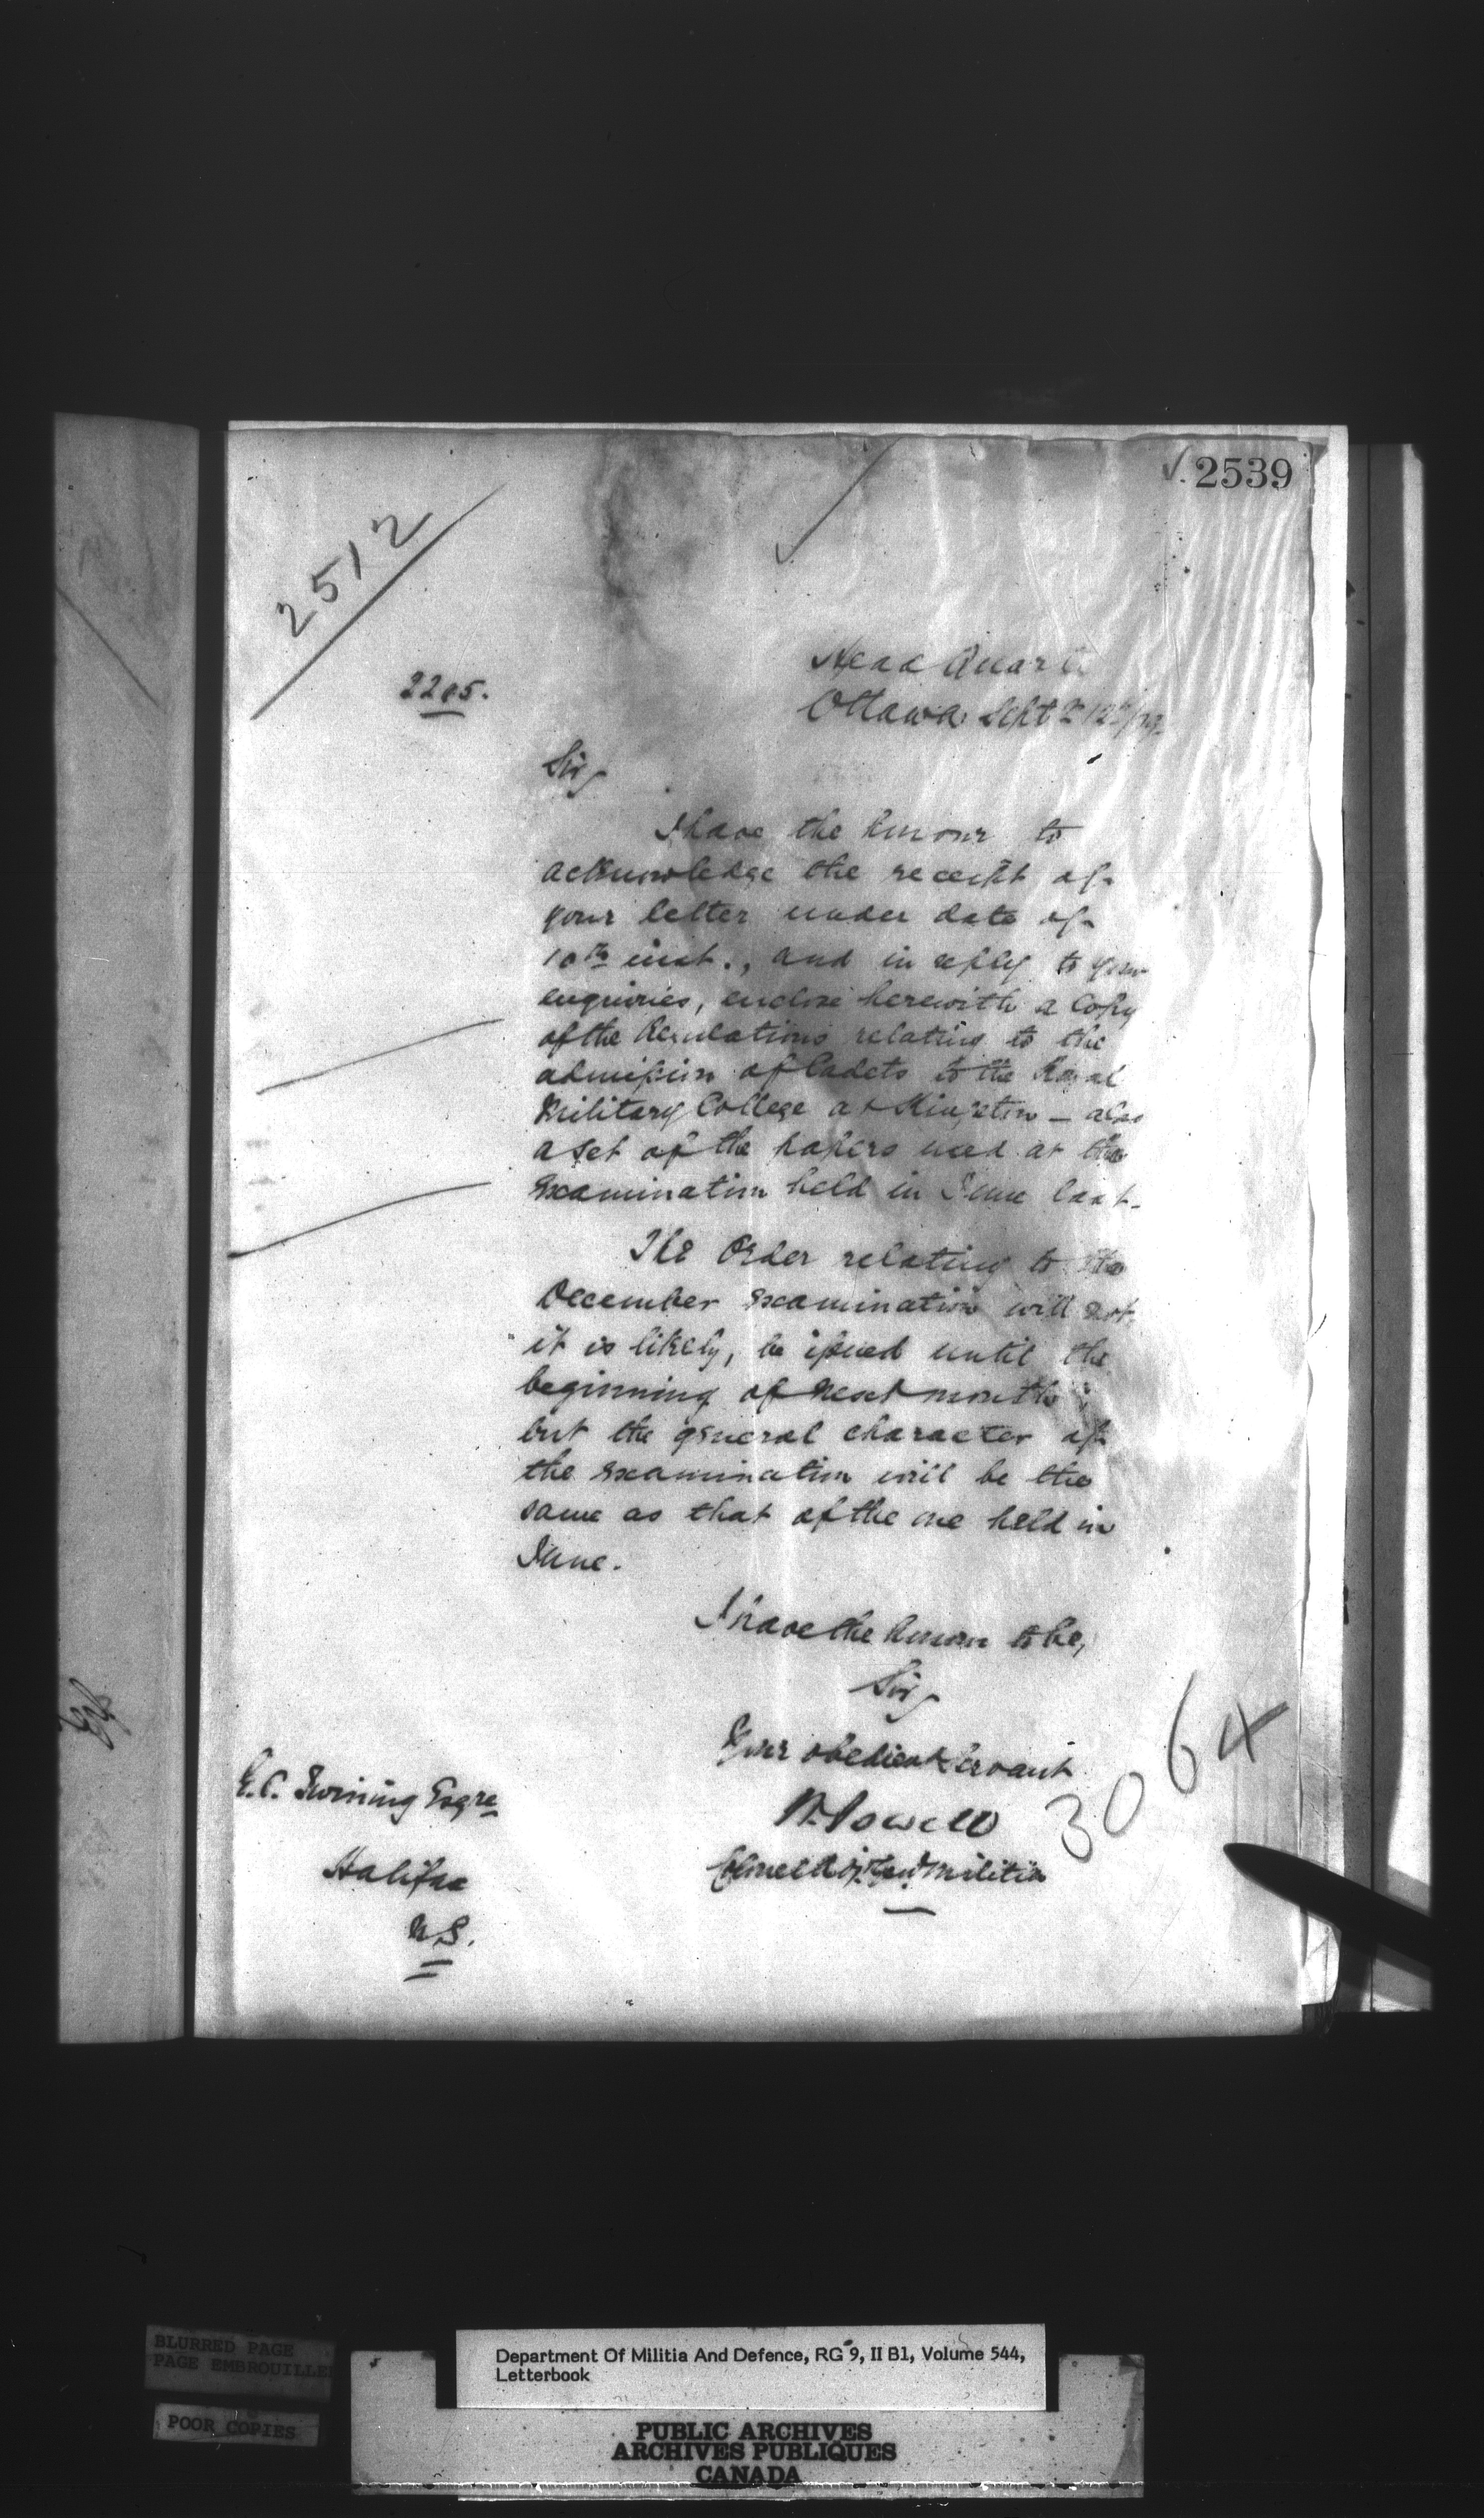 ✓. 2539
2512
Head Quart
2205.
Ottawa Sept
Sir,
I have the honour to
acknowledge the receipt of
your letter under date of
10th inst., and in reply to your
enquiries, enclose herewith a copy
of the Regulations relating to the
admission of Cadets to the Royal
Military College at Kingston – also
a set of the papers used at the
Examination held in June last.
The Order relating to the
December Examination will not,
it is likely, be issued until the
beginning of next month;
but the general character of
the Examination will be the
same as that of the one held in
June.
I have the honour to be,
Sir,
Your obedient Servant
W. Powell
Colonel Adjt Genl Militia
3064
E.C. Twining Esqre
Halifax
N.S.
BLURRED PAGE
PAGE EMBROUILLE
POOR COPIES
Department Of Militia And Defence, RG 9, II B1, Volume 544,
Letterbook
PUBLIC ARCHIVES
ARCHIVES PUBLIQUES
CANADA